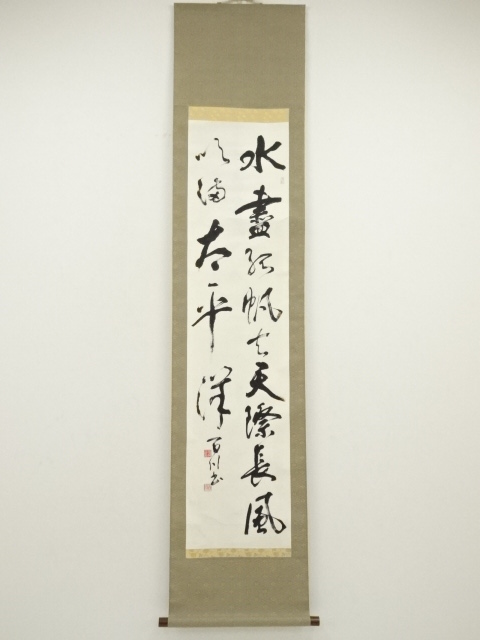 水盡孤帆去天際長風
吹満太平洋
百川書